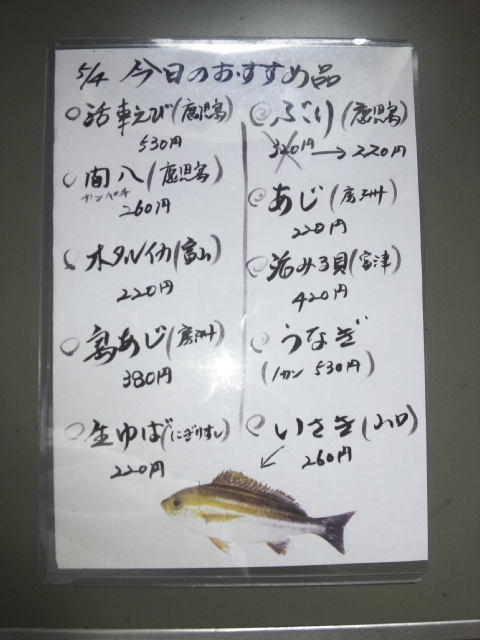 5/4 今日のおすすめ品
○活車えび(鹿児島)
530円
○間八(鹿児島)
カンパチ
260円
○ホタルイカ(富山)
220円
○島あじ(房州)
380円
○生ゆば(にぎりすし)
220円
◎ぶり(鹿児島)
320円→220円
◎あじ(房州)
220円
◎活みる貝(富津)
420円
◎うなぎ
(1カン 530円)
◎いさき(山口)
260円